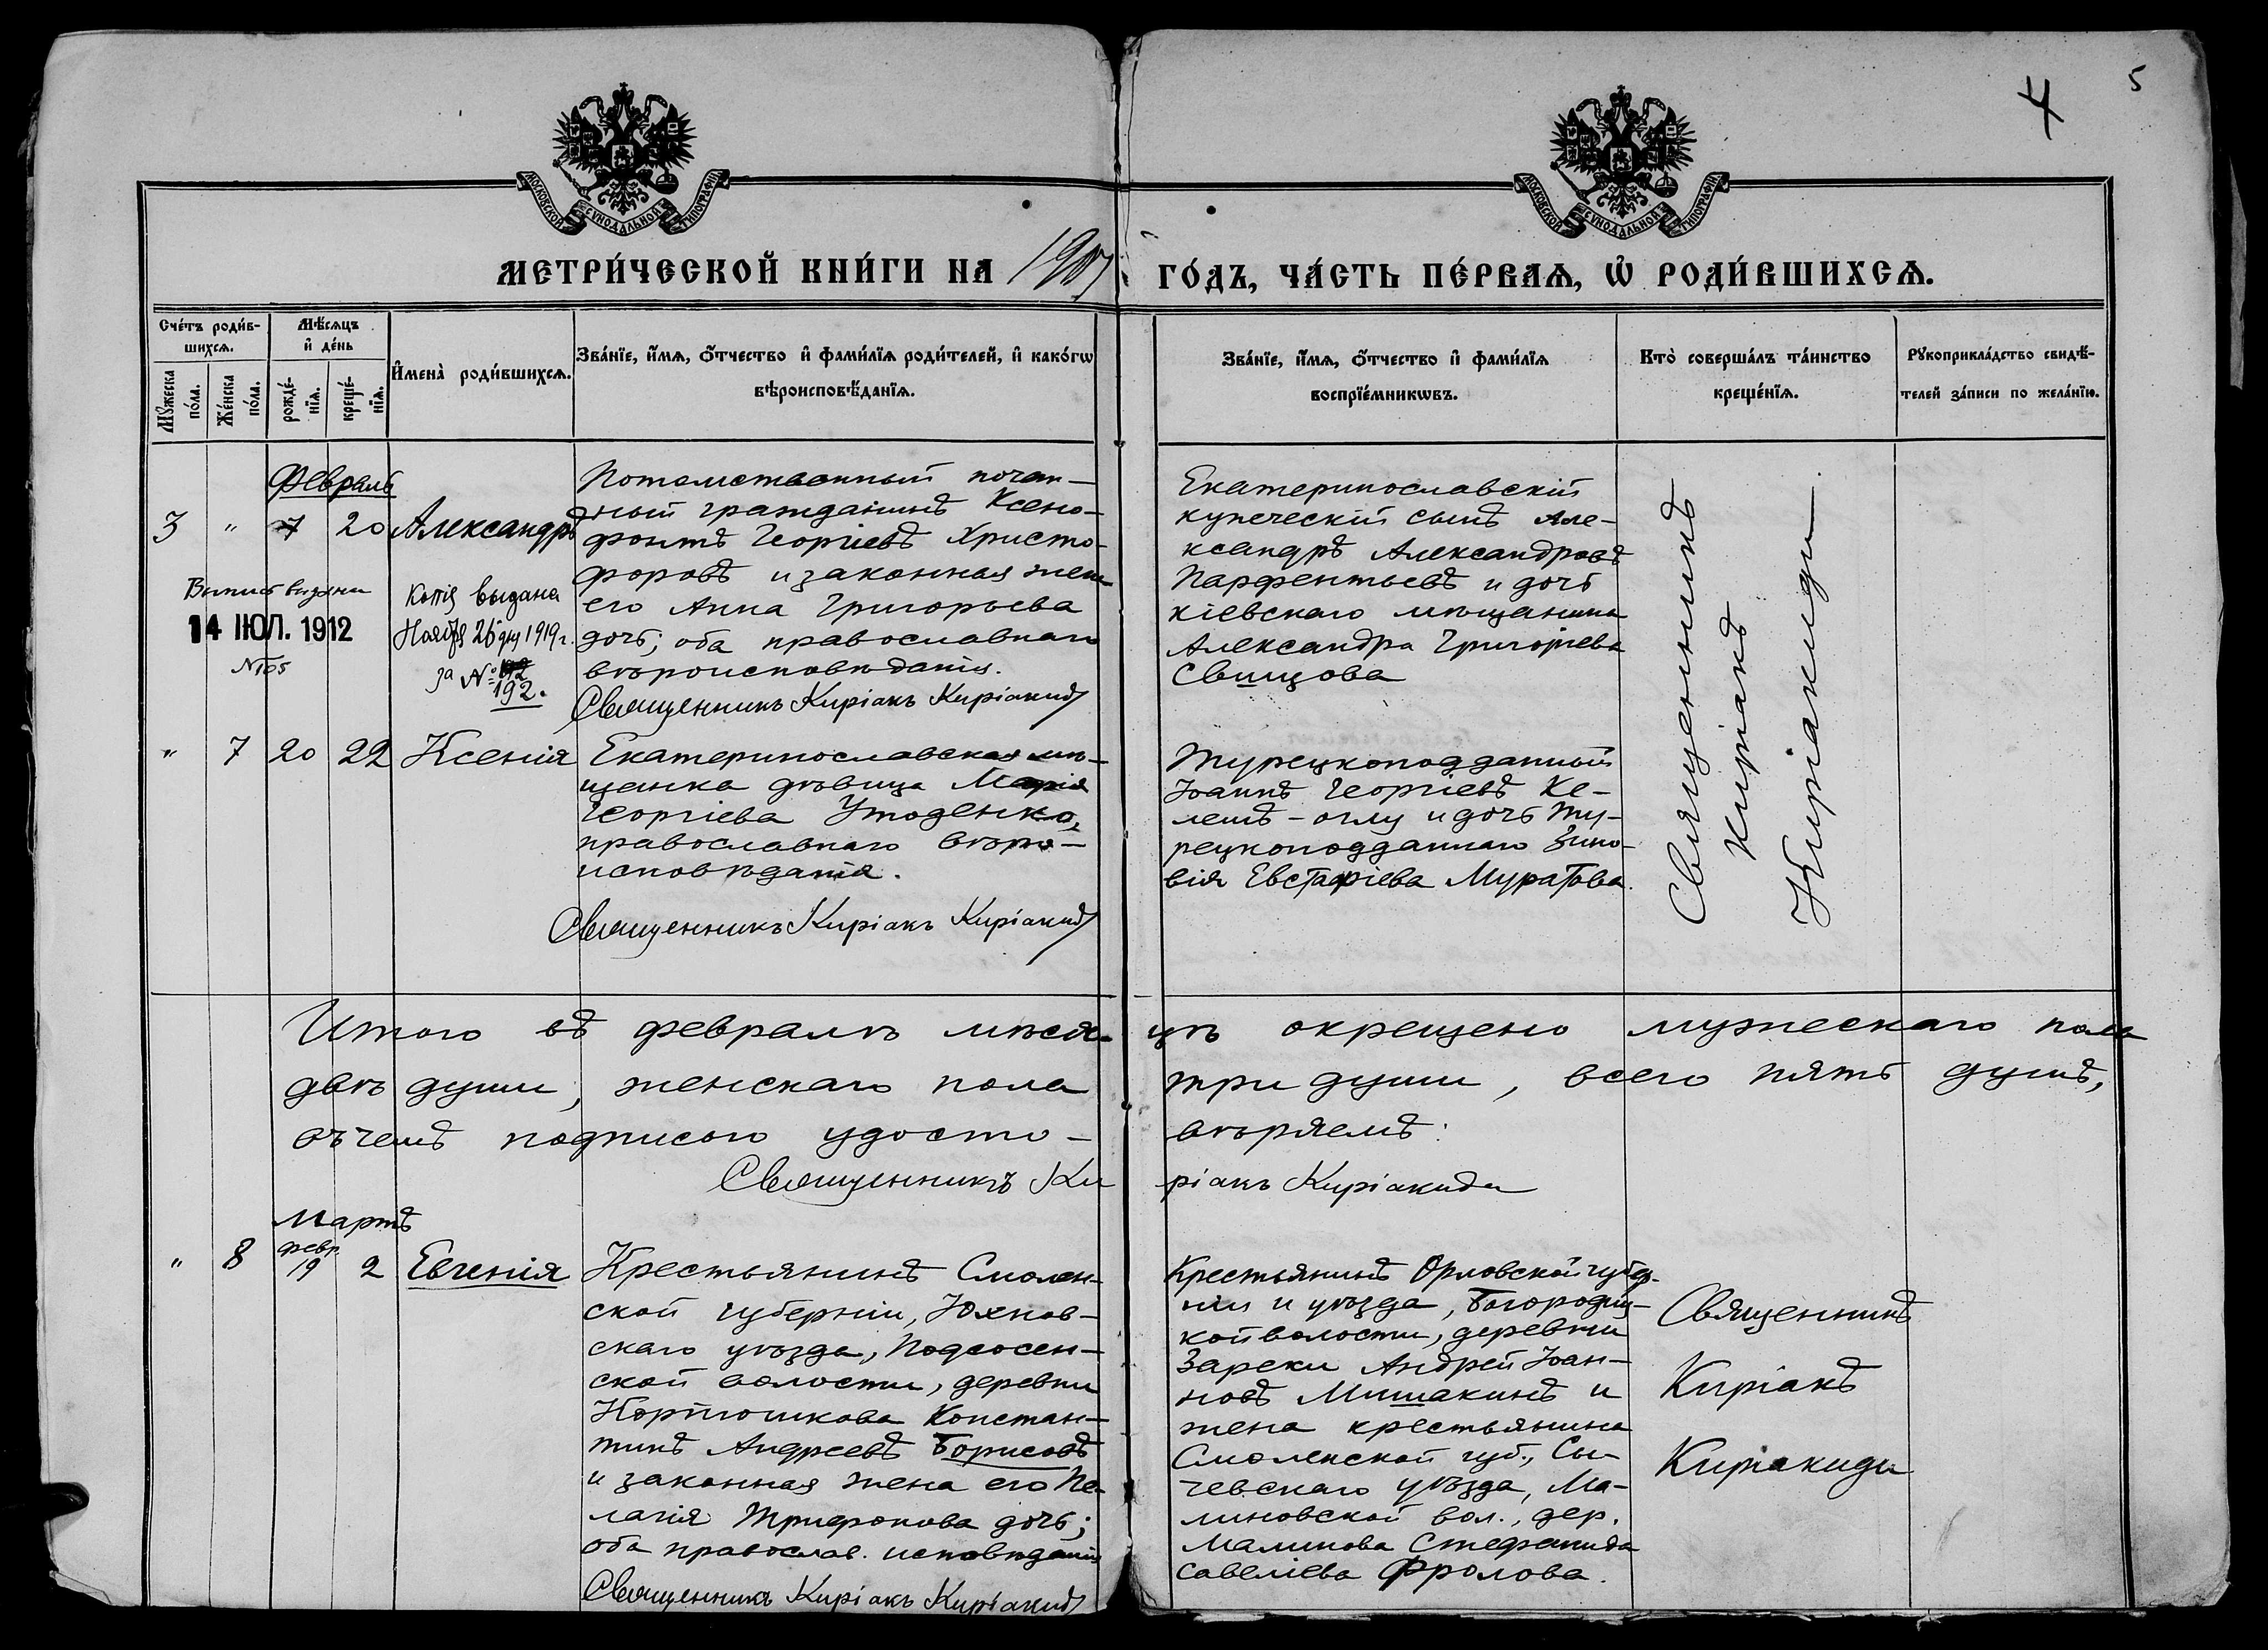 4
5
МОСКОВСКОЙ СѴНОДАЛЬНОЙ ТИПОГРАФІИ
МОСКОВСКОЙ СѴНОДАЛЬНОЙ ТИПОГРАФІИ
МЕТРИ́ЧЕСКОЙ КНИ́ГИ НА
ГО́ДЪ, ЧА́СТЬ ПЕ́РВАѦ, Ѡ҆ РОДИ́ВШИХСѦ.
Сче́тъ роди́в-
шихсѧ.
Мѣ́сѧцъ
и҆ де́нь
Мꙋ́жеска
по́ла.
Же́нска
по́ла.
рожде́-
нїѧ.
креще́-
нїѧ.
И҆мена̀ роди́вшихсѧ.
Зва́нїе, и҆́мѧ, ѻ҆́тчество и҆ фами́лїѧ роди́телей, и҆ како́гѡ
вѣроисповѣ́данїѧ.
Зва́нїе, и҆́мѧ, ѻ҆́тчество и҆ фами́лїѧ
воспрїе́мникѡвъ.
Кто̀ соверша́лъ та́инство
креще́нїѧ.
Рꙋкоприкла́дство свидѣ́-
телей за́писи по жела́нїю.
Февраль
3 " 7 20 Александръ
Выпись выдана
14 ІЮЛ. 1912
№105
Копія выдана
Ноября 26 дня 1919 г.
за №
192.
Потомственный почет-
ный гражданинъ Ксено-
фонтъ Георгіевъ Христо-
форовъ и законная жена
его Анна Григорьева
дочь; оба православнаго
вѣроисповѣданія.
Священникъ Киріакъ Киріакиди
Екатеринославскій
купеческій сынъ Але-
ксандръ Александровъ
Парфентьевъ и дочь
кіевскаго мѣщанина
Александра Григоріева
Свищова
Священникъ
Киріакъ
Киріакиди
" 7 20 22 Ксенія
Екатеринославская мѣ-
щанка дѣвица Марія
Георгіева Утоденко,
православнаго вѣро-
исповѣданія.
Священникъ Киріакъ Киріакиди
Турецкоподданный
Іоаннъ Георгіевъ Ке-
лешъ-оглу и дочь ту-
рецкоподданнаго Зино-
вія Евстафіева Муратова.
Итого въ февралѣ мѣся-цѣ окрещено мужескаго пола
двѣ души, женскаго пола три души, всего пять душъ,
въ чемъ подписью удосто-вѣряемъ:
Священникъ Киріакъ Киріакиди
Мартъ
февр.
" 8 19 2 Евгенія
Крестьянинъ Смолен-
ской губерніи, Юхнов-
скаго уѣзда, Подсосен-
ской волости, деревни
Констан-
тинъ Андреевъ Борисовъ
и законная жена его Пе-
лагія Трифонова дочь;
оба православ. исповѣданія
Священникъ Киріакъ Киріакиди
Крестьянинъ Орловской губер-
ніи и уѣзда, Богородиц-
кой волости, деревни
Зареки Андрей Іоан-
новъ Мишакинъ и
жена крестьянина
Смоленской губ., Сы-
чевскаго уѣзда, Ма-
линовской вол., дер.
Малинова Стефанида
Савеліева Фролова.
Священникъ
Киріакъ
Киріакиди